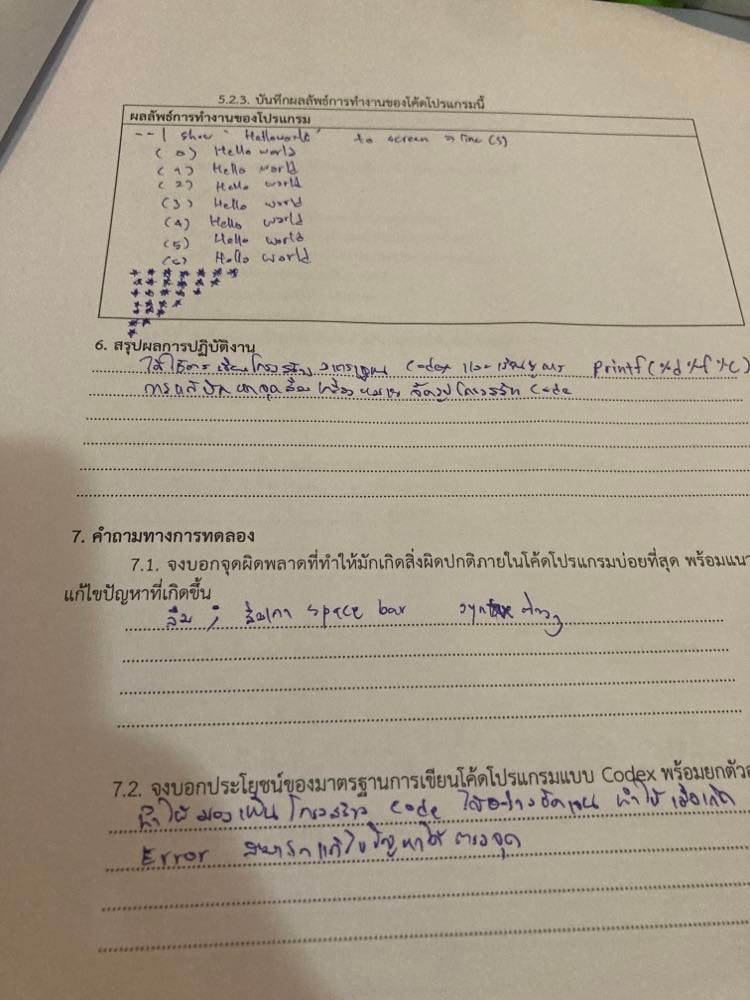 5.2.3. บันทึกผลลัพธ์การทำงานของโค้ดโปรแกรมนี้
ผลลัพธ์การทำงานของโปรแกรม
--| show "Helloworld" to screen 7 line (s)
(0) Hello world
(1) Hello world
(2) Hello world
(3) Hello world
(4) Hello world
(5) Hello world
(6) Hello world
6. สรุปผลการปฏิบัติงาน
Codex และเรียนรู้การ printf (%d %f %c)
Code
7. คำถามทางการทดลอง
7.1. จงบอกจุดผิดพลาดที่ทำให้มักเกิดสิ่งผิดปกติภายในโค้ดโปรแกรมบ่อยที่สุด พร้อมแนว
แก้ไขปัญหาที่เกิดขึ้น
ลืม ; ลืมเคาะ space bar syntax ต่างๆ
7.2. จงบอกประโยชน์ของมาตรฐานการเขียนโค้ดโปรแกรมแบบ Codex พร้อมยกตัวอ
ทำให้มองเห็นโครงสร้าง code ได้อย่างชัดเจน ทำให้เมื่อเกิด
Error สามารถแก้ไขปัญหาได้ตรงจุด